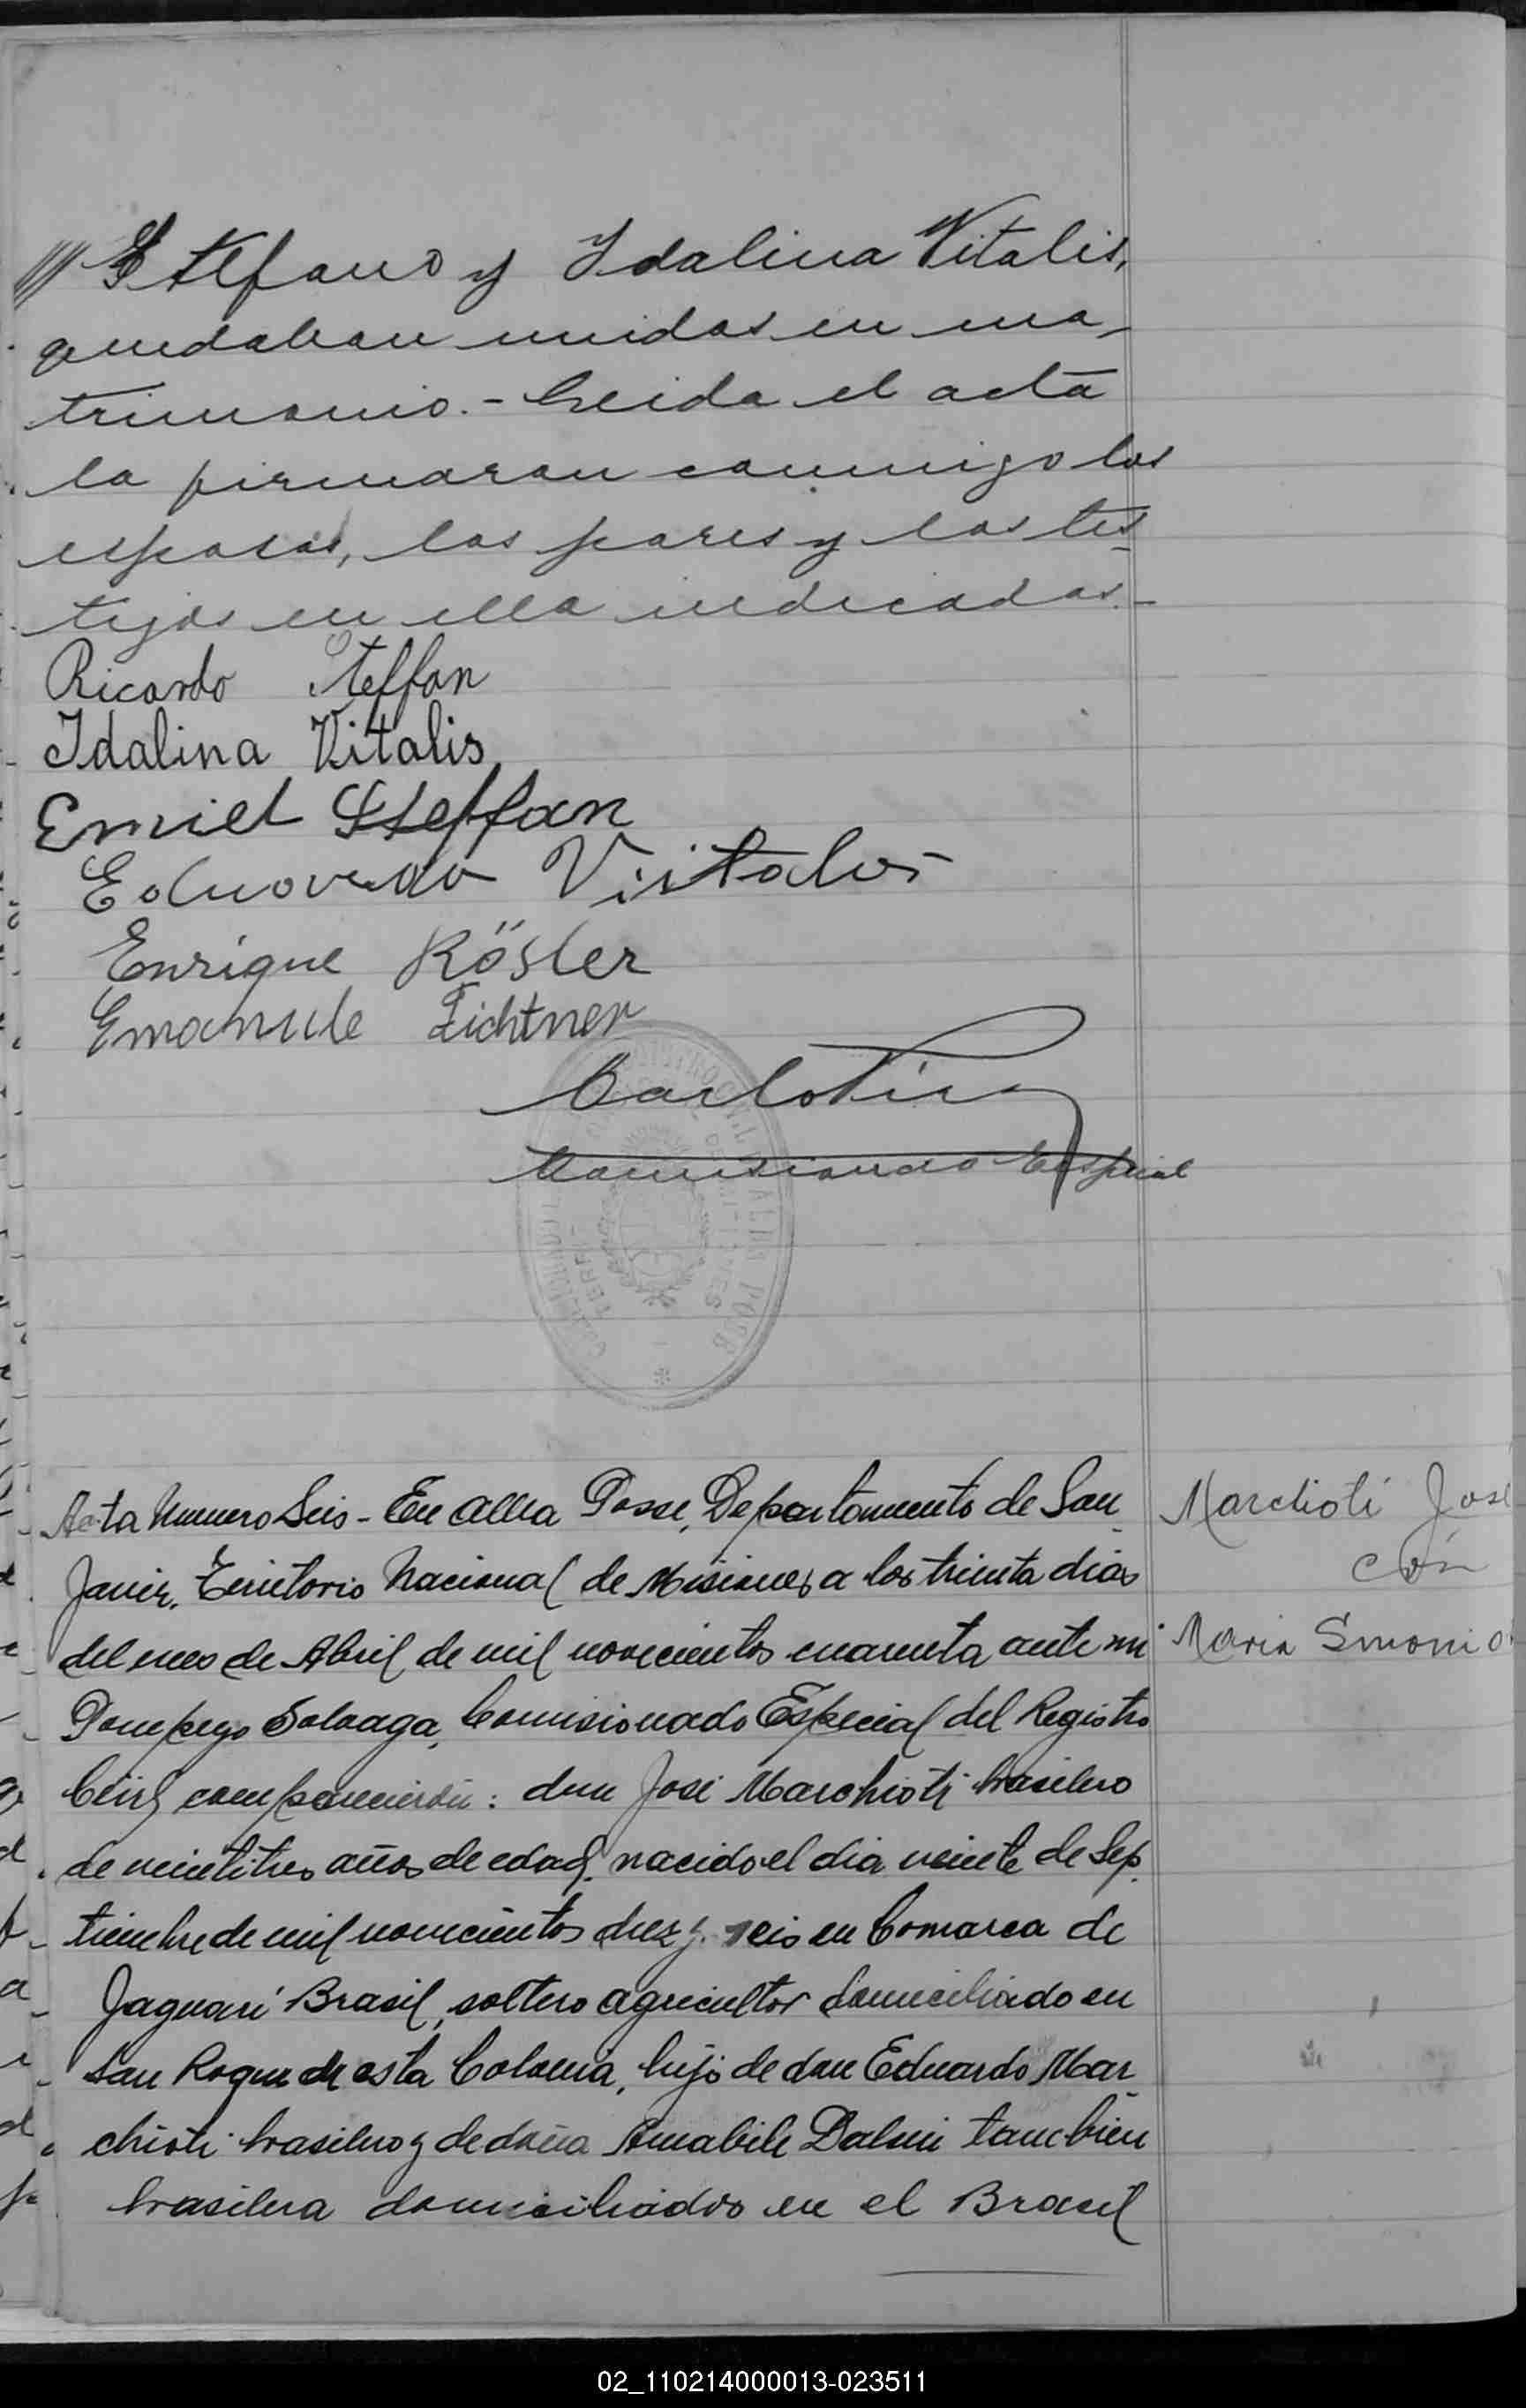 /// Stefano y Idalina Vitalis,
quedaban unidos en ma-
trimonio.- Leida el acta
la firmaron conmigo los
esposos, los pares y los tes-
tigos en ella indicados.-
Ricardo Steffan
Idalina Vitalis
Emiel Steffan
Eduardo Vitalis
Enrique Rösler
Emanuele Lichtner
Comisionado Especial
Acta Numero Seis - En Alba Posse, Departamento de San
Javier, Territorio Nacional de Misiones a los treinta dias
del mes de Abril de mil novecientos cuarenta ante mi
Pompeyo Soloaga, Comisionado Especial del Registro
Civil, comparecieron: don José Marchioti brasilero
de veintitres años de edad, nacido el dia veinte de Sep-
tiembre de mil novecientos diez y seis en Comarca de
Jaguari Brasil, soltero agricultor domiciliado en
San Roque de esta Colonia, hijo de don Eduardo Mar-
chioti brasilero y de doña Amabile Dalmi tambien
brasilera domiciliados en el Brasil
Marchioti José
con
Maria Simonio
02_110214000013-023511